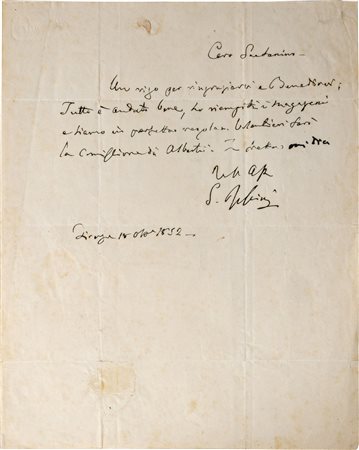 Caro Saturnino –
Un rigo per ringraziarvi e Benedirvi;
Tutto è andato bene, ho riempiti i magazzeni
e siamo in perfetta regola. Volentieri farò
la commissione di Alberti. In fretta
S.
Firenze 18 8bre 1852 –